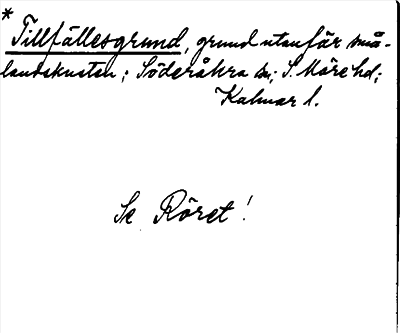 *
Tillfällesgrund, grund utanför små-
landskusten; Söderåkra sn; S. Möre hd;
Kalmar l.
Se Röret!